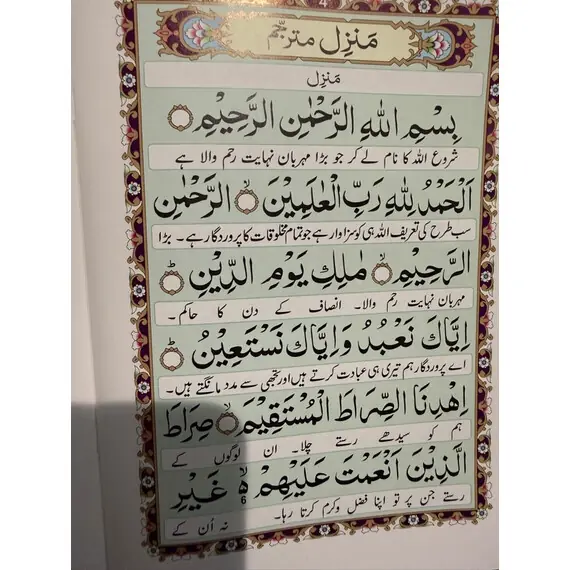 4
مَنزِل مترجّم
مَنزِل
بِسْمِ اللّٰهِ الرَّحْمٰنِ الرَّحِيْمِ
شروع اللہ کا نام لے کر جو بڑا مہربان نہایت رحم والا ہے
اَلْحَمْدُ لِلّٰهِ رَبِّ الْعٰلَمِيْنَ ۙ الرَّحْمٰنِ
سب طرح کی تعریف اللہ ہی کو سزاوار ہے جو تمام مخلوقات کا پروردگار ہے۔ بڑا
الرَّحِيْمِ ۙ مٰلِكِ يَوْمِ الدِّيْنِ ؕ
مہربان نہایت رحم والا۔ انصاف کے دن کا حاکم۔
اِيَّاكَ نَعْبُدُ وَاِيَّاكَ نَسْتَعِيْنُ ؕ
اے پروردگار ہم تیری ہی عبادت کرتے ہیں اور تجھی سے مدد مانگتے ہیں۔
اِهْدِنَا الصِّرَاطَ الْمُسْتَقِيْمَ ۙ صِرَاطَ
ہم کو سیدھے رستے چلا۔ ان لوگوں کے
الَّذِيْنَ اَنْعَمْتَ عَلَيْهِمْ ۙ 6 غَيْرِ
رستے جن پر تو اپنا فضل وکرم کرتا رہا۔ نہ اُن کے